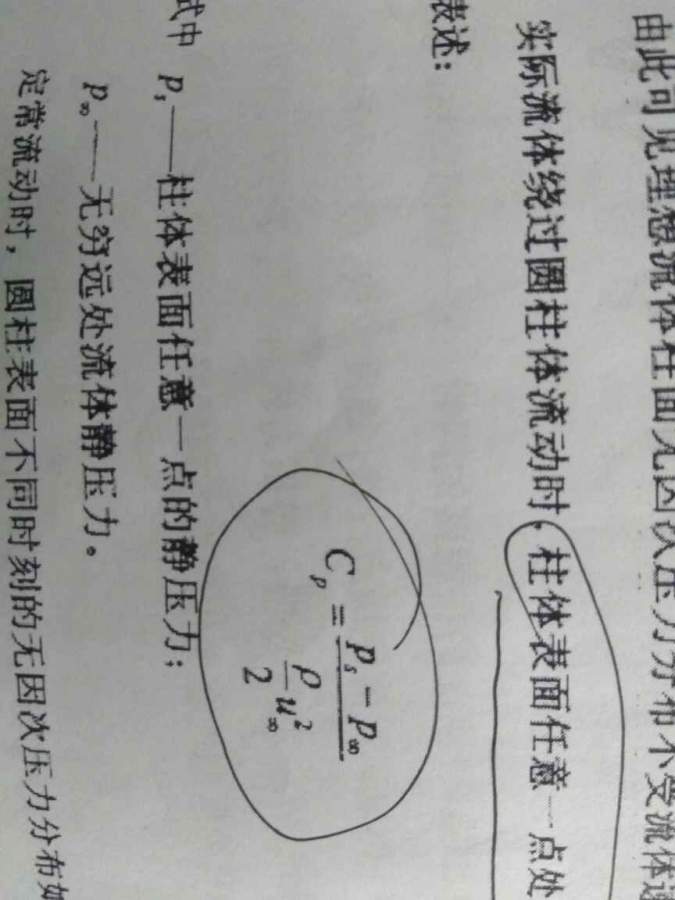 由此可见理想流体柱面无因次压力分布不受流体速
实际流体绕过圆柱体流动时，柱体表面任意一点处
表述：
C_p = (p_s − p_∞) / (ρ/2 u_∞^2)
式中 p_s——柱体表面任意一点的静压力；
p_∞——无穷远处流体静压力。
定常流动时，圆柱表面不同时刻的无因次压力分布如